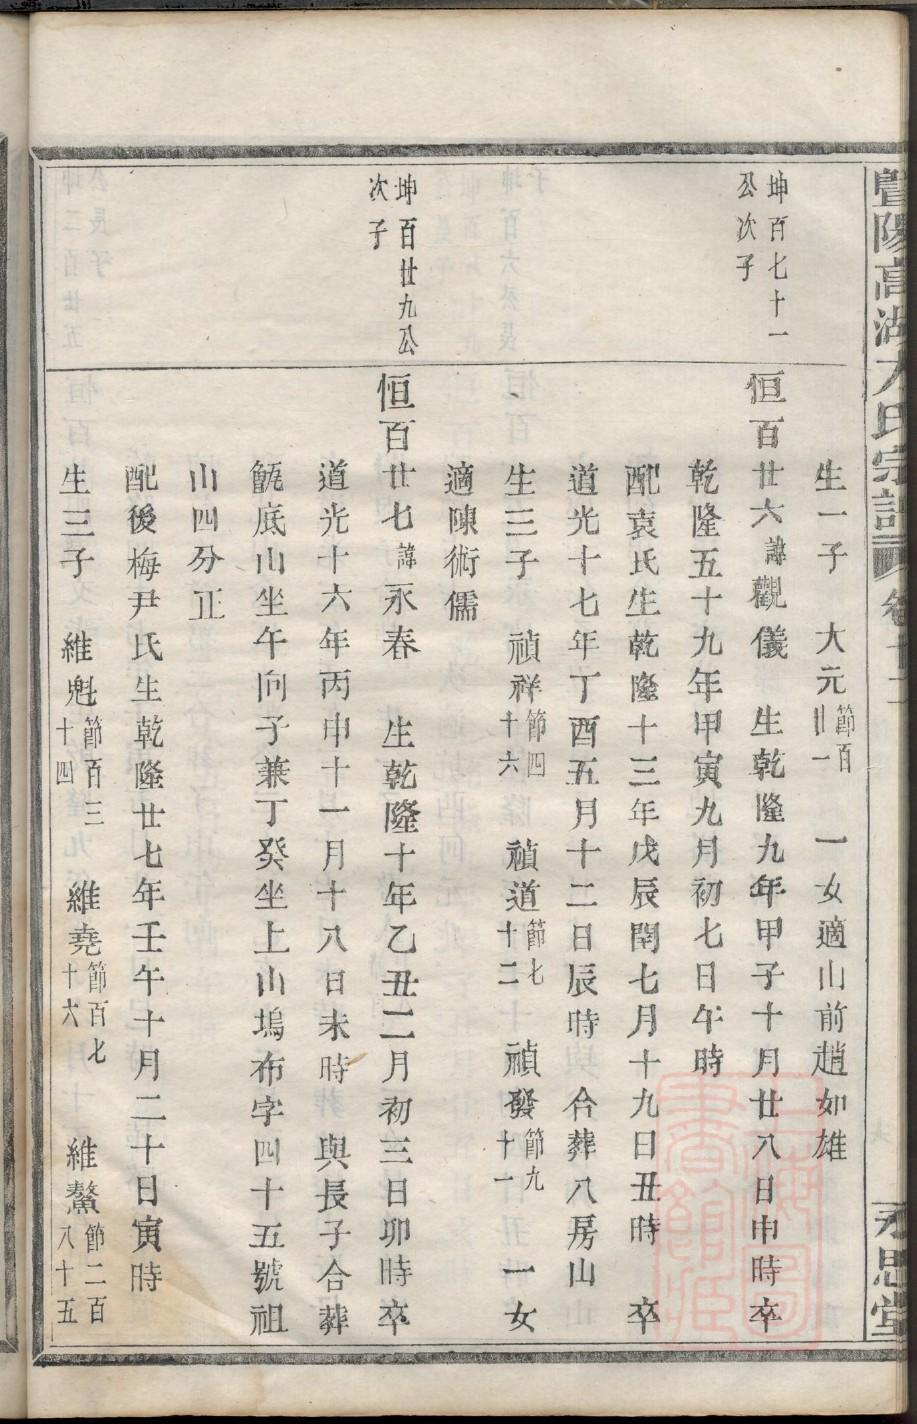 暨陽高湖方氏宗譜
永思堂
生一子　大元節百卅一　一女適山前趙如雄
坤百七十一公次子
恒百廿六諱觀儀　生乾隆九年甲子十月廿八日申時卒
乾隆五十九年甲寅九月初七日午時
配袁氏生乾隆十三年戊辰閏七月十九日丑時　卒
道光十七年丁酉五月十二日辰時　合葬八房山
生三子　禎祥節四十六　禎道節七十二　禎發節九十一　一女
適陳術儒
坤百廿九公次子
恒百廿七諱永春　生乾隆十年乙丑二月初三日卯時卒
道光十六年丙申十一月十八日未時　與長子合葬
甑底山坐午向子兼丁癸坐上山塢布字四十五號祖
山四分正
配後梅尹氏生乾隆廿七年壬午十月二十日寅時
生三子　維魁節百三十四　維堯節百七十六　維鰲節二百八十五